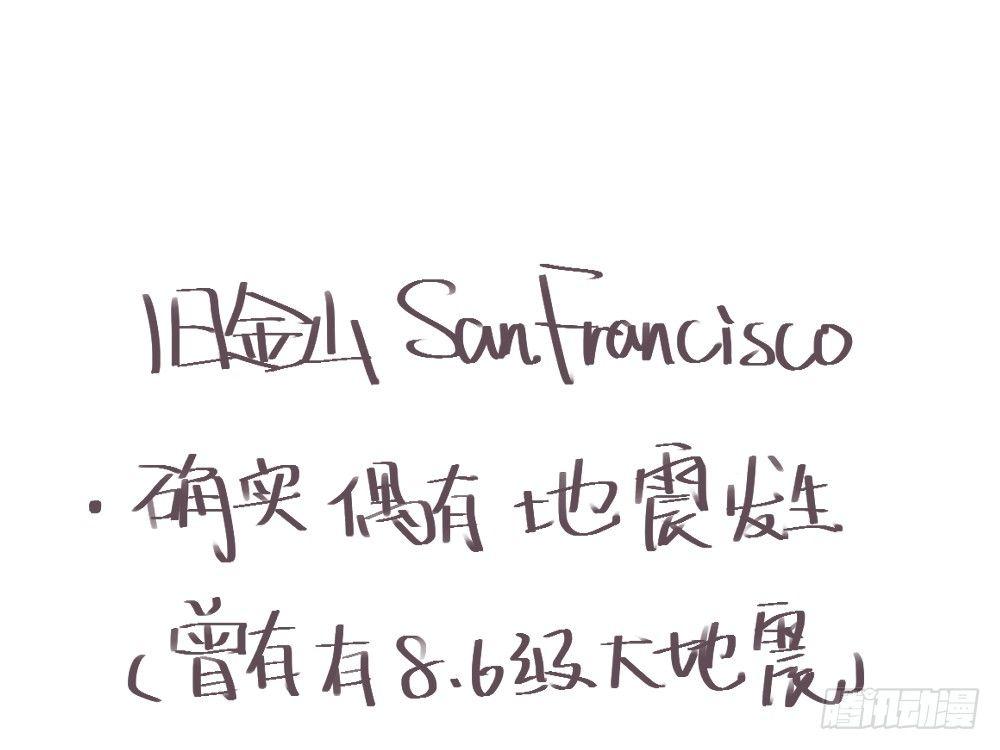 旧金山 San Francisco
·确实偶有地震发生
(曾有有8.6级大地震)
腾讯动漫